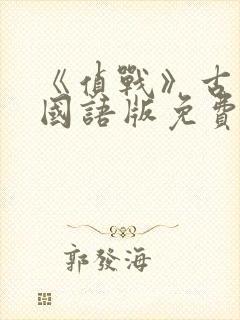 《偵戰》古
國語版免費
郭發海